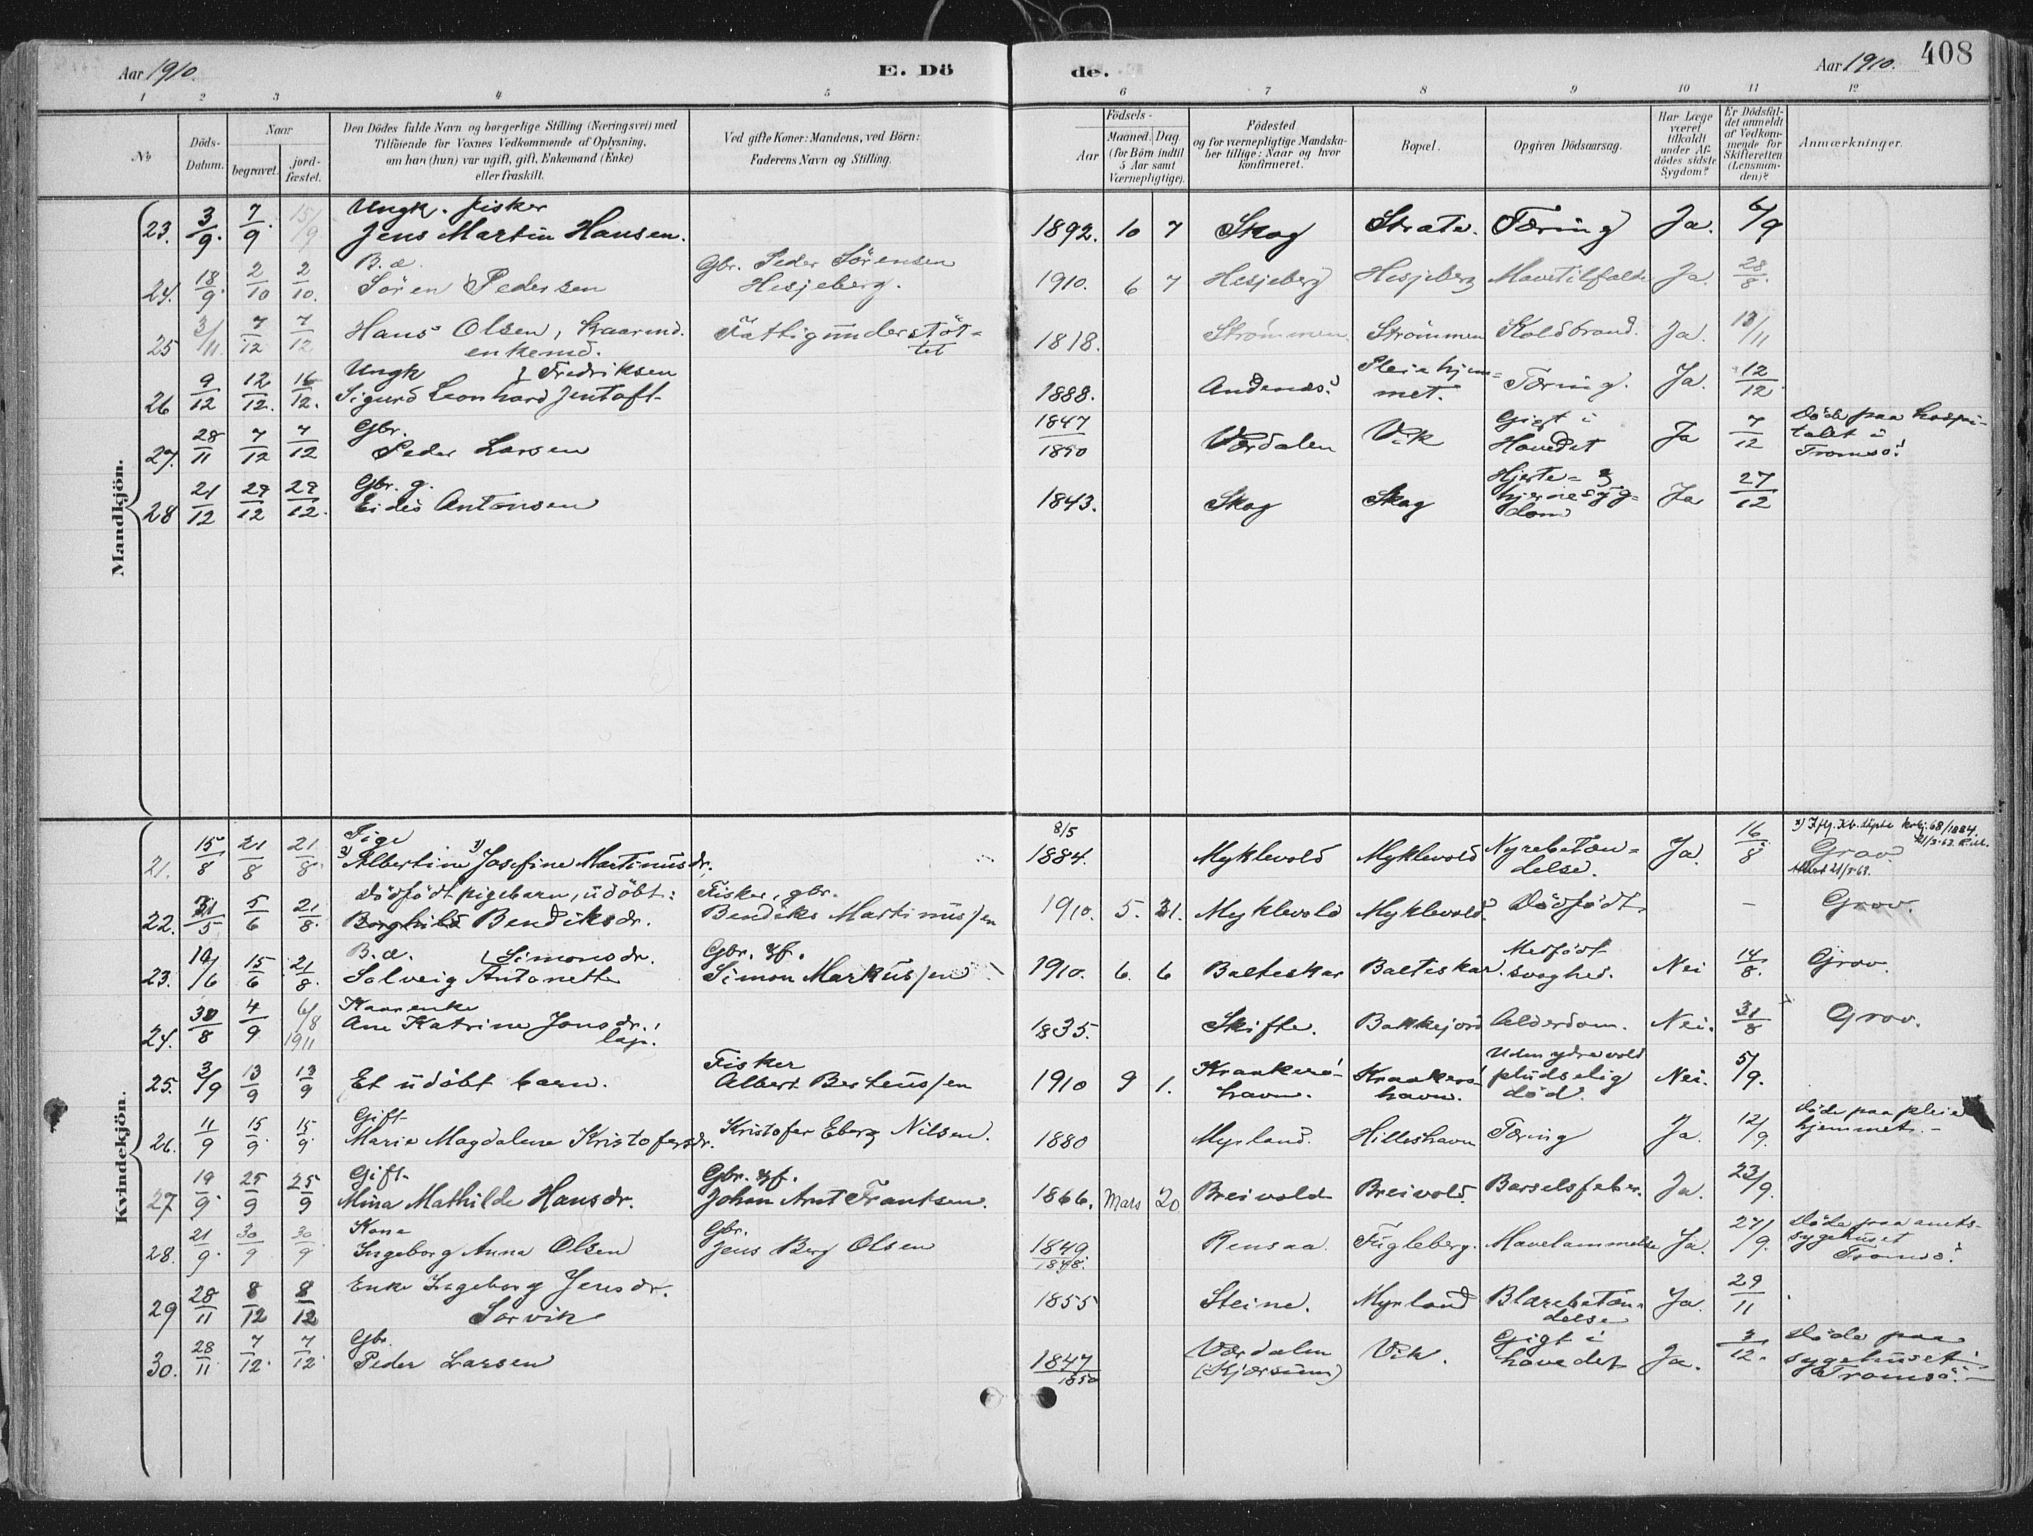 Aar 1910.
E. Dö
de.
Aar 1910.
408
1 2 3 4 5 6 7 8 9 10 11 12
No
Döds-Datum.
Naar
begravet.
jord-fæstet.
Den Dödes fulde Navn og borgerlige Stilling (Næringsvei) med
Tilföiende for Voxnes Vedkommende af Oplysning,
om han (hun) var ugift, gift, Enkemand (Enke)
eller fraskilt.
Ved gifte Koner: Mandens, ved Börn:
Faderens Navn og Stilling.
Födsels-
Aar
Maaned. Dag.
(for Börn indtil
5 Aar samt
Værnepligtige).
Födested
og for værnepligtige Mandska-
ber tillige: Naar og hvor
konfirmeret.
Bopæl.
Opgiven Dödsaarsag.
Har Læge
været
tilkaldt
under Af-
dödes sidste
Sygdom?
Er Dödsfal-
det anmeldt
af Vedkom-
mende for
Skifteretten
(Lensman-
den)?
Anmærkninger.
Mandkjön.
23. 3/9. 7/9 15/9 Ungk. fisker
Jens Martin Hansen. 1892. 10 7 Skog Strate. Tæring Ja. 6/9
24. 18/9. 2/10 2/10. B. æ.
Sören Pedersen Gbr. Peder Sörensen
Hesjeberg. 1910. 6 7 Hesjeberg Hesjeberg Mavetilfælde Ja. 28/8.
25 3/11. 7/12 7/12 Hans Olsen, kaarmd.
enkemd. Fattigunderstöt-
tet 1818. Strømmen. Strømmen Koldbrand. Ja. 13/11
26 9/12 12/12. 16/12. Ungk Fredriksen
Sigurd Leonhard Jentoft 1888. Andenæs. Pleiehjem-
met. Tæring. Ja. 12/12
27. 28/11 7/12 7/12 Gbr.
Peder Larsen 1847
1850 Værdalen Vik Gigt i
Hovedet Ja 7/12 Döde paa hospi-
talet i
Tromsö.
28 21/12 29/12 29/12. Gbr. g.
Eides Antonsen 1843. Skog Skog Hjerte- &
hjernesyg-
dom Ja 27/12
Kvindekjön.
21. 15/8 21/8 21/8. Pige
Albertine Josefine Martinusdr. 8/5
1884. Myklevold Myklevold Nyrebetæn-
delse. Ja. 16/8 Grav
22. 31/5 5/6 21/8. Dödfödt pigebarn, udöbt:
Borghild Bendiksdr. Fisker, gbr.
Bendiks Martinussen 1910. 5. 31. Myklevold Myklevold. Dödfödt. - Grav.
23. 10/6 15/6 21/8. B. æ. Simonsdr.
Solveig Antonette Gbr. & f.
Simon Markussen 1910. 6. 6 Balteskar Balteskar. Medfödt
svaghed. Nei 14/8. Grav.
24. 30/8 4/9 6/8
1911 Kaarenke
Ane Katrine Jonsdr.,
lap. 1835. Skifte. Bakkejord Alderdom. Nei. 31/8 Grav.
25. 3/9 13/9 13/9 Et udöbt barn. Fisker
Albert Berteussen 1910 9 1. Kraakerö-
havn. Kraakerö-
havn. Uden ydre vold
pludselig
död. Nei. 5/9.
26. 11/9 15/9. 15/9. Gift
Marie Magdalene Kristofersdr. Kristofer Eberg Nilsen. 1880 Myrland. Hilleshavn Tæring Ja. 12/9. Döde paa pleie
hjemmet.-
27 19/9. 25/9 25/9 Gift
Mina Mathilde Hansdr. Gbr. & f.
Johan Arnt Frantsen. 1866. Mars 20 Breivold Breivold. Barselsfeber. Ja. 23/9.
28. 21/9. 30/9 30/9. Kone
Ingeborg Anna Olsen Gbr.
Jens Berg Olsen 1849.
1848. Rensaa. Fugleberg. Mavelammelse Ja. 27/9. Döde paa amts-
sygehuset
Tromsö.
29 28/11 8/12 8/12 Enke Ingeborg Jensdr.
Sörvik 1855 Steine. Myrland Blærebetæn-
delse Ja. 29/11
30. 28/11. 7/12. 7/12. Gbr.
Peder Larsen 1847
1850 Værdalen
(Kjærsum) Vik. Gigt i
hovedet Ja. 3/12. Döde paa
sygehuset i
Tromsö.-